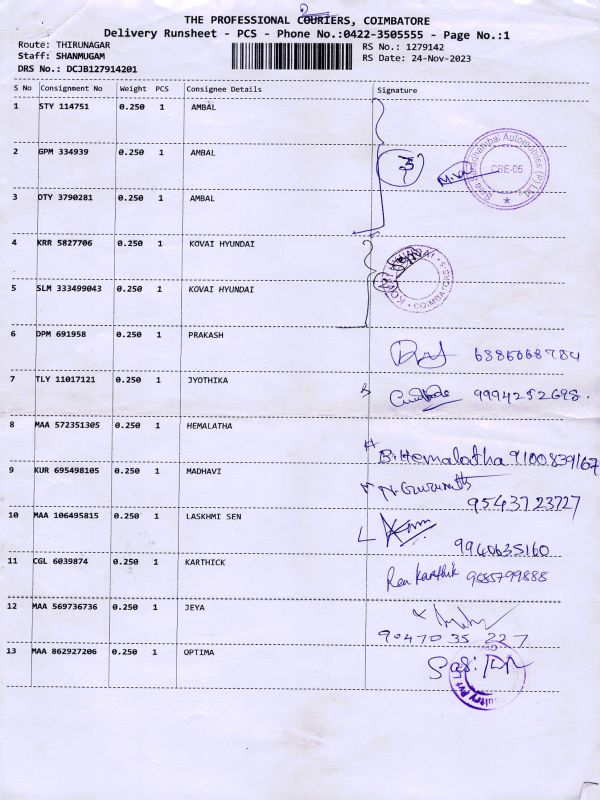 THE PROFESSIONAL COURIERS, COIMBATORE
Delivery Runsheet - PCS - Phone No.:0422-3505555 - Page No.:1
Route: THIRUNAGAR RS No.: 1279142
Staff: SHANMUGAM RS Date: 24-Nov-2023
DRS No.: DCJB127914201
S No Consignment No Weight PCS Consignee Details Signature
1 STY 114751 0.250 1 AMBAL
2 GPM 334939 0.250 1 AMBAL
CBE-05
3 OTY 3790281 0.250 1 AMBAL
4 KRR 5827706 0.250 1 KOVAI HYUNDAI
5 SLM 333499043 0.250 1 KOVAI HYUNDAI
6 DPM 691958 0.250 1 PRAKASH
7 TLY 11017121 0.250 1 JYOTHIKA 9994252698.
8 MAA 572351305 0.250 1 HEMALATHA
B.Hemalatha 9100839167
9 KUR 695498105 0.250 1 MADHAVI
9543723727
10 MAA 106495815 0.250 1 LASKHMI SEN
9940635160
11 CGL 6039874 0.250 1 KARTHICK
Karthik
12 MAA 569736736 0.250 1 JEYA
90470 35 227
13 MAA 862927206 0.250 1 OPTIMA